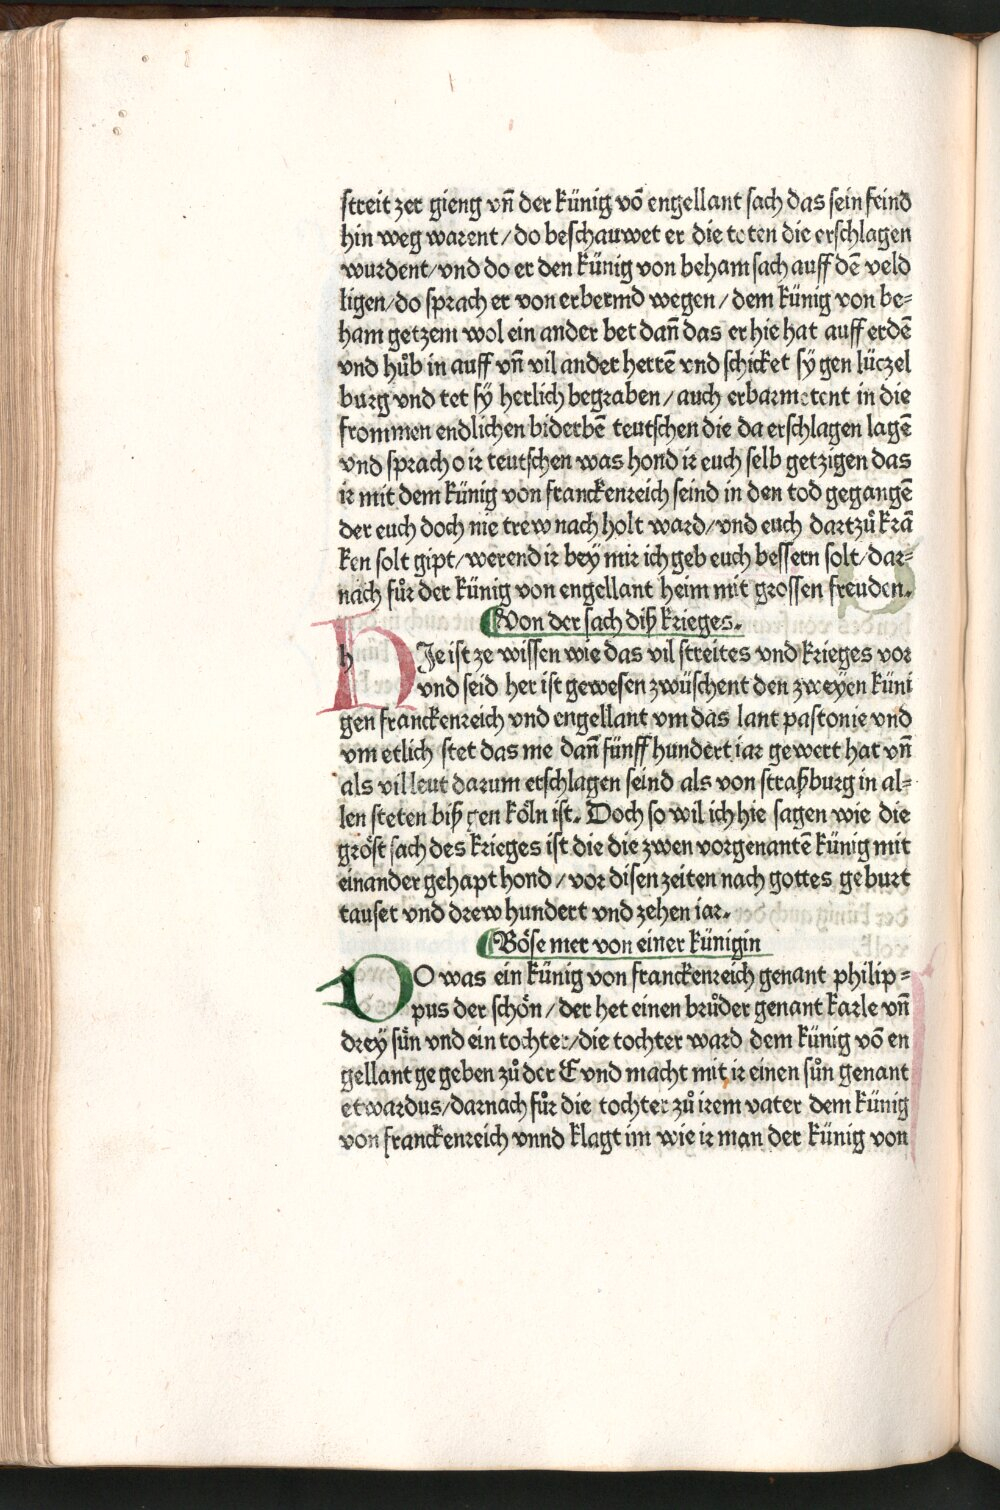 streit zer gieng vñ der künig võ engellant sach das sein feind
hin weg warent / do beschauwet er die toten die erschlagen
wurdent / vnd do er den künig von beham sach auff dẽ veld
ligen / do sprach er von erbermd wegen / dem künig von be⸗
ham getzem wol ein ander bet dañ das er hie hat auff erdẽ
vnd hůb in auff vñ vil ander herrẽ vnd schicket sy gen lüczel
burg vnd tet sy herlich begraben / auch erbarmetent in die
frommen endlichen biderbẽ teutschen die da erschlagen lagẽ
vnd sprach o ir teutschen was hond ir euch selb getzigen das
ir mit dem künig von franckenreich seind in den tod gegangẽ
der euch doch nie trew nach holt ward / vnd euch dartzů krã
ken solt gipt / werend ir bey mir ich geb euch bessern solt / dar⸗
nach fůr der künig von engellant heim mit grossen freuden.
Von der sach diß krieges.
HJe ist ze wissen wie das vil streites vnd krieges vor
vnd seid her ist gewesen zwüschent den zweyen küni
gen franckenreich vnd engellant vm das lant pastonie vnd
vm etlich stet das me dañ fünff hundert iar gewert hat vñ
als vil leut darum erschlagen seind als von straßburg in al⸗
len steten biß gen köln ist. Doch so wil ich hie sagen wie die
gröst sach des krieges ist die die zwen vorgenantẽ künig mit
einander gehapt hond / vor disen zeiten nach gottes geburt
tauset vnd drew hundert vnd zehen iar.
Böse mer von einer künigin
DO was ein künig von franckenreich genant philip⸗
pus der schön / der het einen brůder genant karle vñ
drey sün vnd ein tochter / die tochter ward dem künig võ en
gellant ge geben zů der E vnd macht mit ir einen sůn genant
etwardus / darnach fůr die tochter zů irem vater dem künig
von franckenreich vnnd klagt im wie ir man der künig von